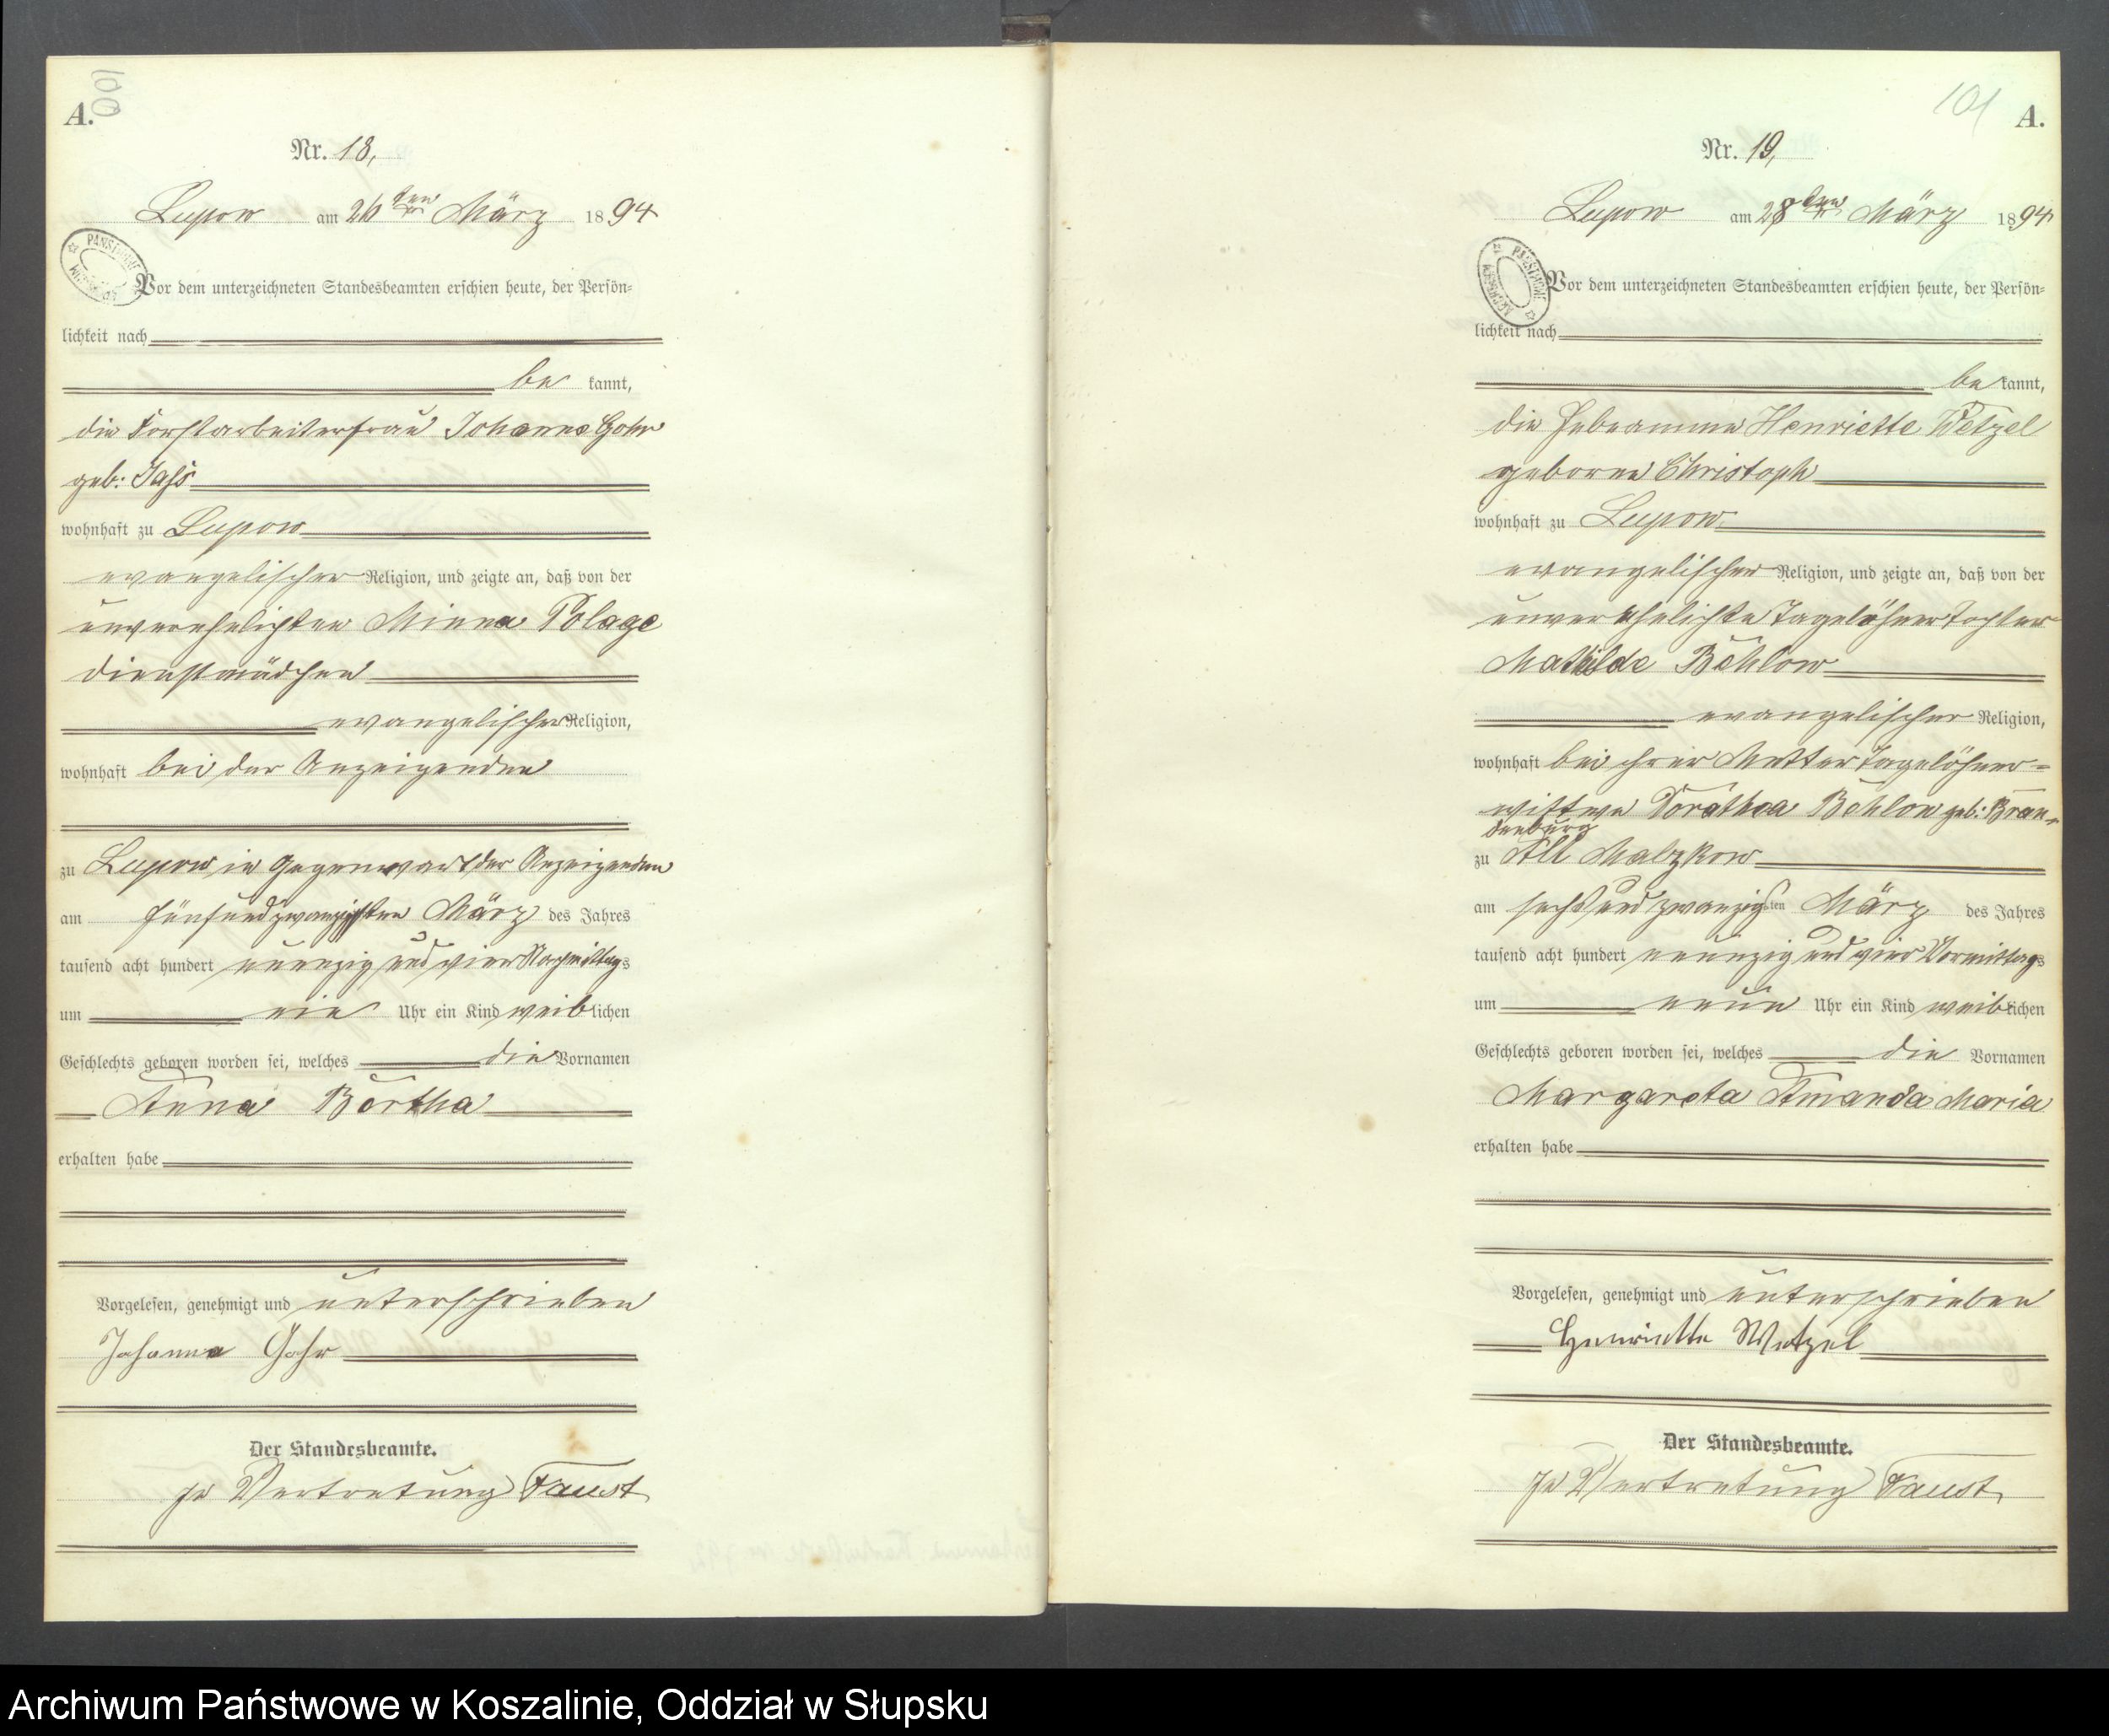 100
A.
Nr. 18,
Lupow am 26ten März 1894
Vor dem unterzeichneten Standesbeamten erschien heute, der Persön-
lichkeit nach
be kannt,
die Forstarbeiterfrau Johanna Gohr
geb: Jass
wohnhaft zu Lupow
evangelischer Religion, und zeigte an, daß von der
unverehelichten Minna Polage
Dienstmädchen
evangelischer Religion,
wohnhaft bei der Anzeigenden
zu Lupow, in Gegenwart der Anzeigenden
am fünfundzwanzigsten März des Jahres
tausend acht hundert neunzig und vier Nachmittags
um ein Uhr ein Kind weiblichen
Geschlechts geboren worden sei, welches die Vornamen
Anna Bertha
erhalten habe
Vorgelesen, genehmigt und unterschrieben
Johanna Gohr
Der Standesbeamte.
In Vertretung Faust
101
A.
Nr. 19,
Lupow am 28ten März 1894
Vor dem unterzeichneten Standesbeamten erschien heute, der Persön-
lichkeit nach
be kannt,
die Hebeamme Henriette Wetzel
geborne Christoph
wohnhaft zu Lupow
evangelischer Religion, und zeigte an, daß von der
unverehelichte Tagelöhnertochter
Mathilde Böhlow
evangelischer Religion,
wohnhaft bei ihrer Mutter Tagelöhner-
wittwe Dorathea Böhlow geb: Bran-
denburg
zu Alt Malzkow
am sechsundzwanzigsten März des Jahres
tausend acht hundert neunzig und vier Vormittags
um neun Uhr ein Kind weiblichen
Geschlechts geboren worden sei, welches die Vornamen
Margareta Amanda Maria
erhalten habe
Vorgelesen, genehmigt und unterschrieben
Henriette Wetzel
Der Standesbeamte.
In Vertretung Faust
Archiwum Państwowe w Koszalinie, Oddział w Słupsku